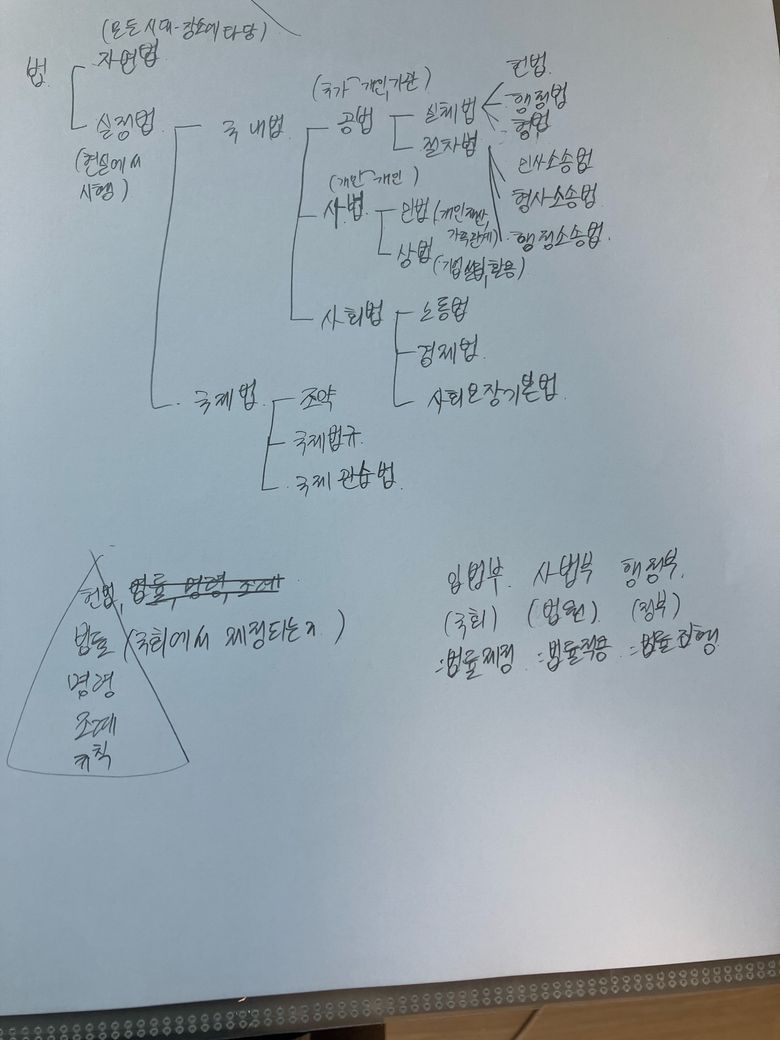 (모든 시대·장소에 타당)
법 자연법
실정법
(현실에서
시행)
국내법
(국가~개인,기관)
공법
실체법
헌법
행정법
형법
절차법
민사소송법
형사소송법
행정소송법
(개인~개인)
사법
민법 (개인재산,
가족관계)
상법 (기업설립,활용)
사회법
노동법
경제법
사회보장기본법
국제법
조약
국제법규
국제관습법
헌법, 법률, 명령, 조례
법률 (국회에서 제정되는지)
명령
조례
규칙
입법부 사법부 행정부
(국회) (법원) (정부)
=법률제정 =법률적용 =법률집행